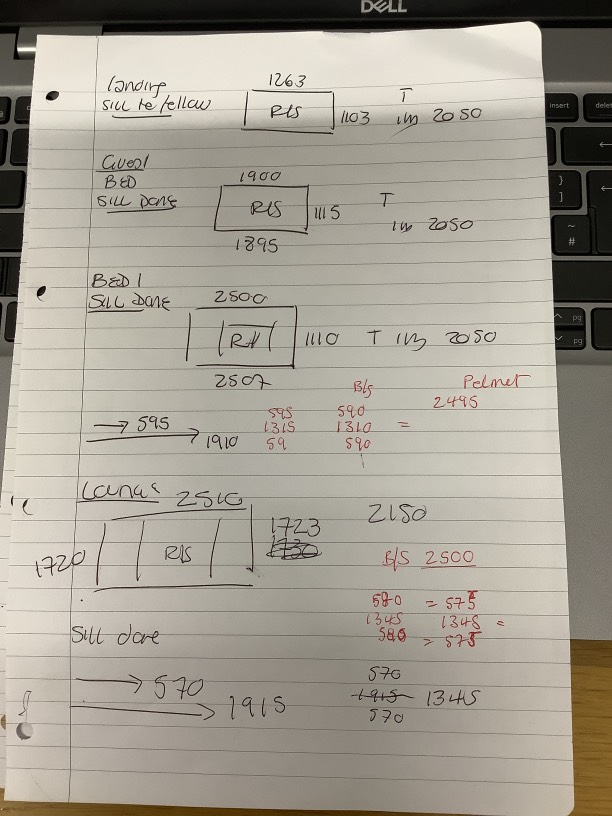 DELL
insert
delet
Landing 1263
Sill te fellow R/S 1103 T
IM 2050
Guest
BED 1900
Sill Done R/S 1115 T
1895 IM 2050
BED 1
Sill Done 2500
1110 T IM 2050
2507
Pelmet
B/S 2495
→ 595 595 590
→ 1910 1315 1310 =
59 590
2510
2150
1720 R/S 1723
B/S 2500
580 = 575
Sill done 1345 1345 =
= 575
→ 570 570
→ 1915 1915 1345
570